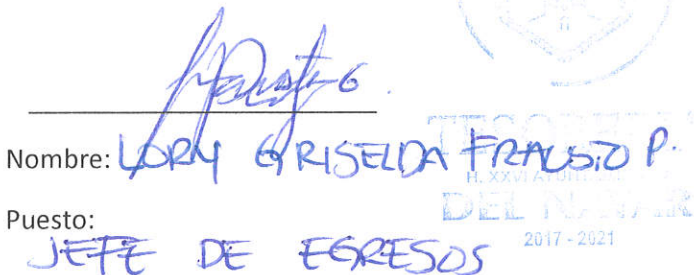 Nombre: LORY GRISELDA FRAUSTO P.
TESORERIA
H. XXVI AYUNT
DEL NAYAR
2017 - 2021
Puesto:
JEFE DE EGRESOS